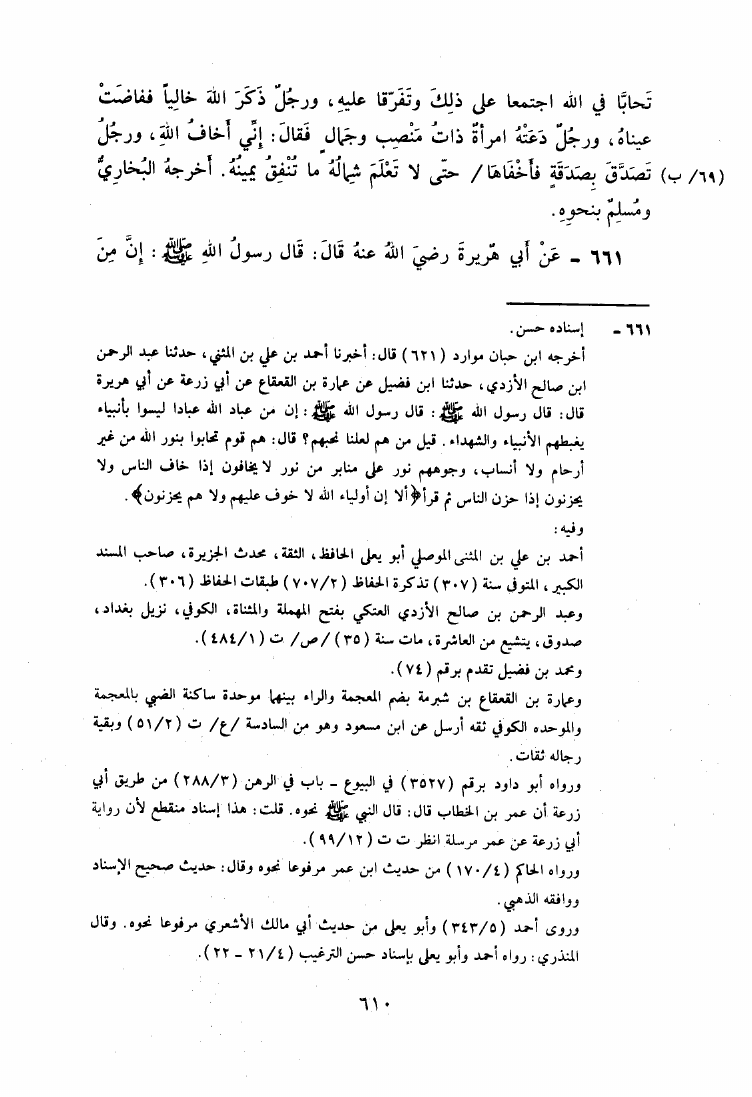 تَحابَّا في الله اجتمعا على ذلِكَ وتَفَرّقا عليهِ، ورجُلٌ ذَكَرَ اللهَ خالِياً ففاضَتْ
عيناهُ، ورجُلٌ دَعَتْهُ امرأةٌ ذاتُ مَنْصِبٍ وجمالٍ فَقالَ: إنِّي أخافُ اللهَ، ورجُلٌ
(٦٩/ ب) تَصَدَّقَ بِصَدَقَةٍ فأخْفاهَا/ حتّى لا تَعْلَمَ شِمالُهُ ما تُنْفِقُ يمينُهُ. أخرجهُ البُخاريُّ
ومُسلِمٌ بنحوِهِ.
٦٦١ - عَنْ أبي هُريرةَ رضيَ اللهُ عنهُ قَالَ: قَال رسولُ اللهِ ﷺ: إنَّ مِنَ
٦٦١ - إسناده حسن.
أخرجه ابن حبان موارد (٦٢١) قال: أخبرنا أحمد بن علي بن المثني، حدثنا عبد الرحمن
ابن صالح الأزدي، حدثنا ابن فضيل عن عمارة بن القعقاع عن أبي زرعة عن أبي هريرة
قال: قال رسول الله ﷺ: قال رسول الله ﷺ: إن من عباد الله عبادا ليسوا بأنبياء
يغبطهم الأنبياء والشهداء. قيل من هم لعلنا نحبهم؟ قال: هم قوم تحابوا بنور الله من غير
أرحام ولا أنساب، وجوههم نور على منابر من نور لا يخافون إذا خاف الناس ولا
يحزنون إذا حزن الناس ثم قرأ ﴿ألا إن أولياء الله لا خوف عليهم ولا هم يحزنون﴾.
وفيه:
أحمد بن علي بن المثنى الموصلي أبو يعلى الحافظ، الثقة، محدث الجزيرة، صاحب المسند
الكبير، المتوفى سنة (٣٠٧) تذكرة الحفاظ (٧٠٧/٢) طبقات الحفاظ (٣٠٦).
وعبد الرحمن بن صالح الأزدي العتكي بفتح المهملة والمثناة، الكوفي، نزيل بغداد،
صدوق، يتشيع من العاشرة، مات سنة (٣٥) /ص/ ت (٤٨٤/١).
ومحمد بن فضيل تقدم برقم (٧٤).
وعمارة بن القعقاع بن شبرمة بضم المعجمة والراء بينهما موحدة ساكنة الضبي بالمعجمة
والموحده الكوفي ثقه أرسل عن ابن مسعود وهو من السادسة /ع/ ت (٥١/٢) وبقية
رجاله ثقات.
ورواه أبو داود برقم (٣٥٢٧) في البيوع - باب في الرهن (٢٨٨/٣) من طريق أبي
زرعة أن عمر بن الخطاب قال: قال النبي ﷺ نحوه. قلت: هذا إسناد منقطع لأن رواية
أبي زرعة عن عمر مرسلة انظر ت ت (٩٩/١٢).
ورواه الحاكم (١٧٠/٤) من حديث ابن عمر مرفوعا نحوه وقال: حديث صحيح الإسناد
ووافقه الذهبي.
وروى أحمد (٣٤٣/٥) وأبو يعلى من حديث أبي مالك الأشعري مرفوعا نحوه. وقال
المنذري: رواه أحمد وأبو يعلى بإسناد حسن الترغيب (٢١/٤ - ٢٢).
٦١٠